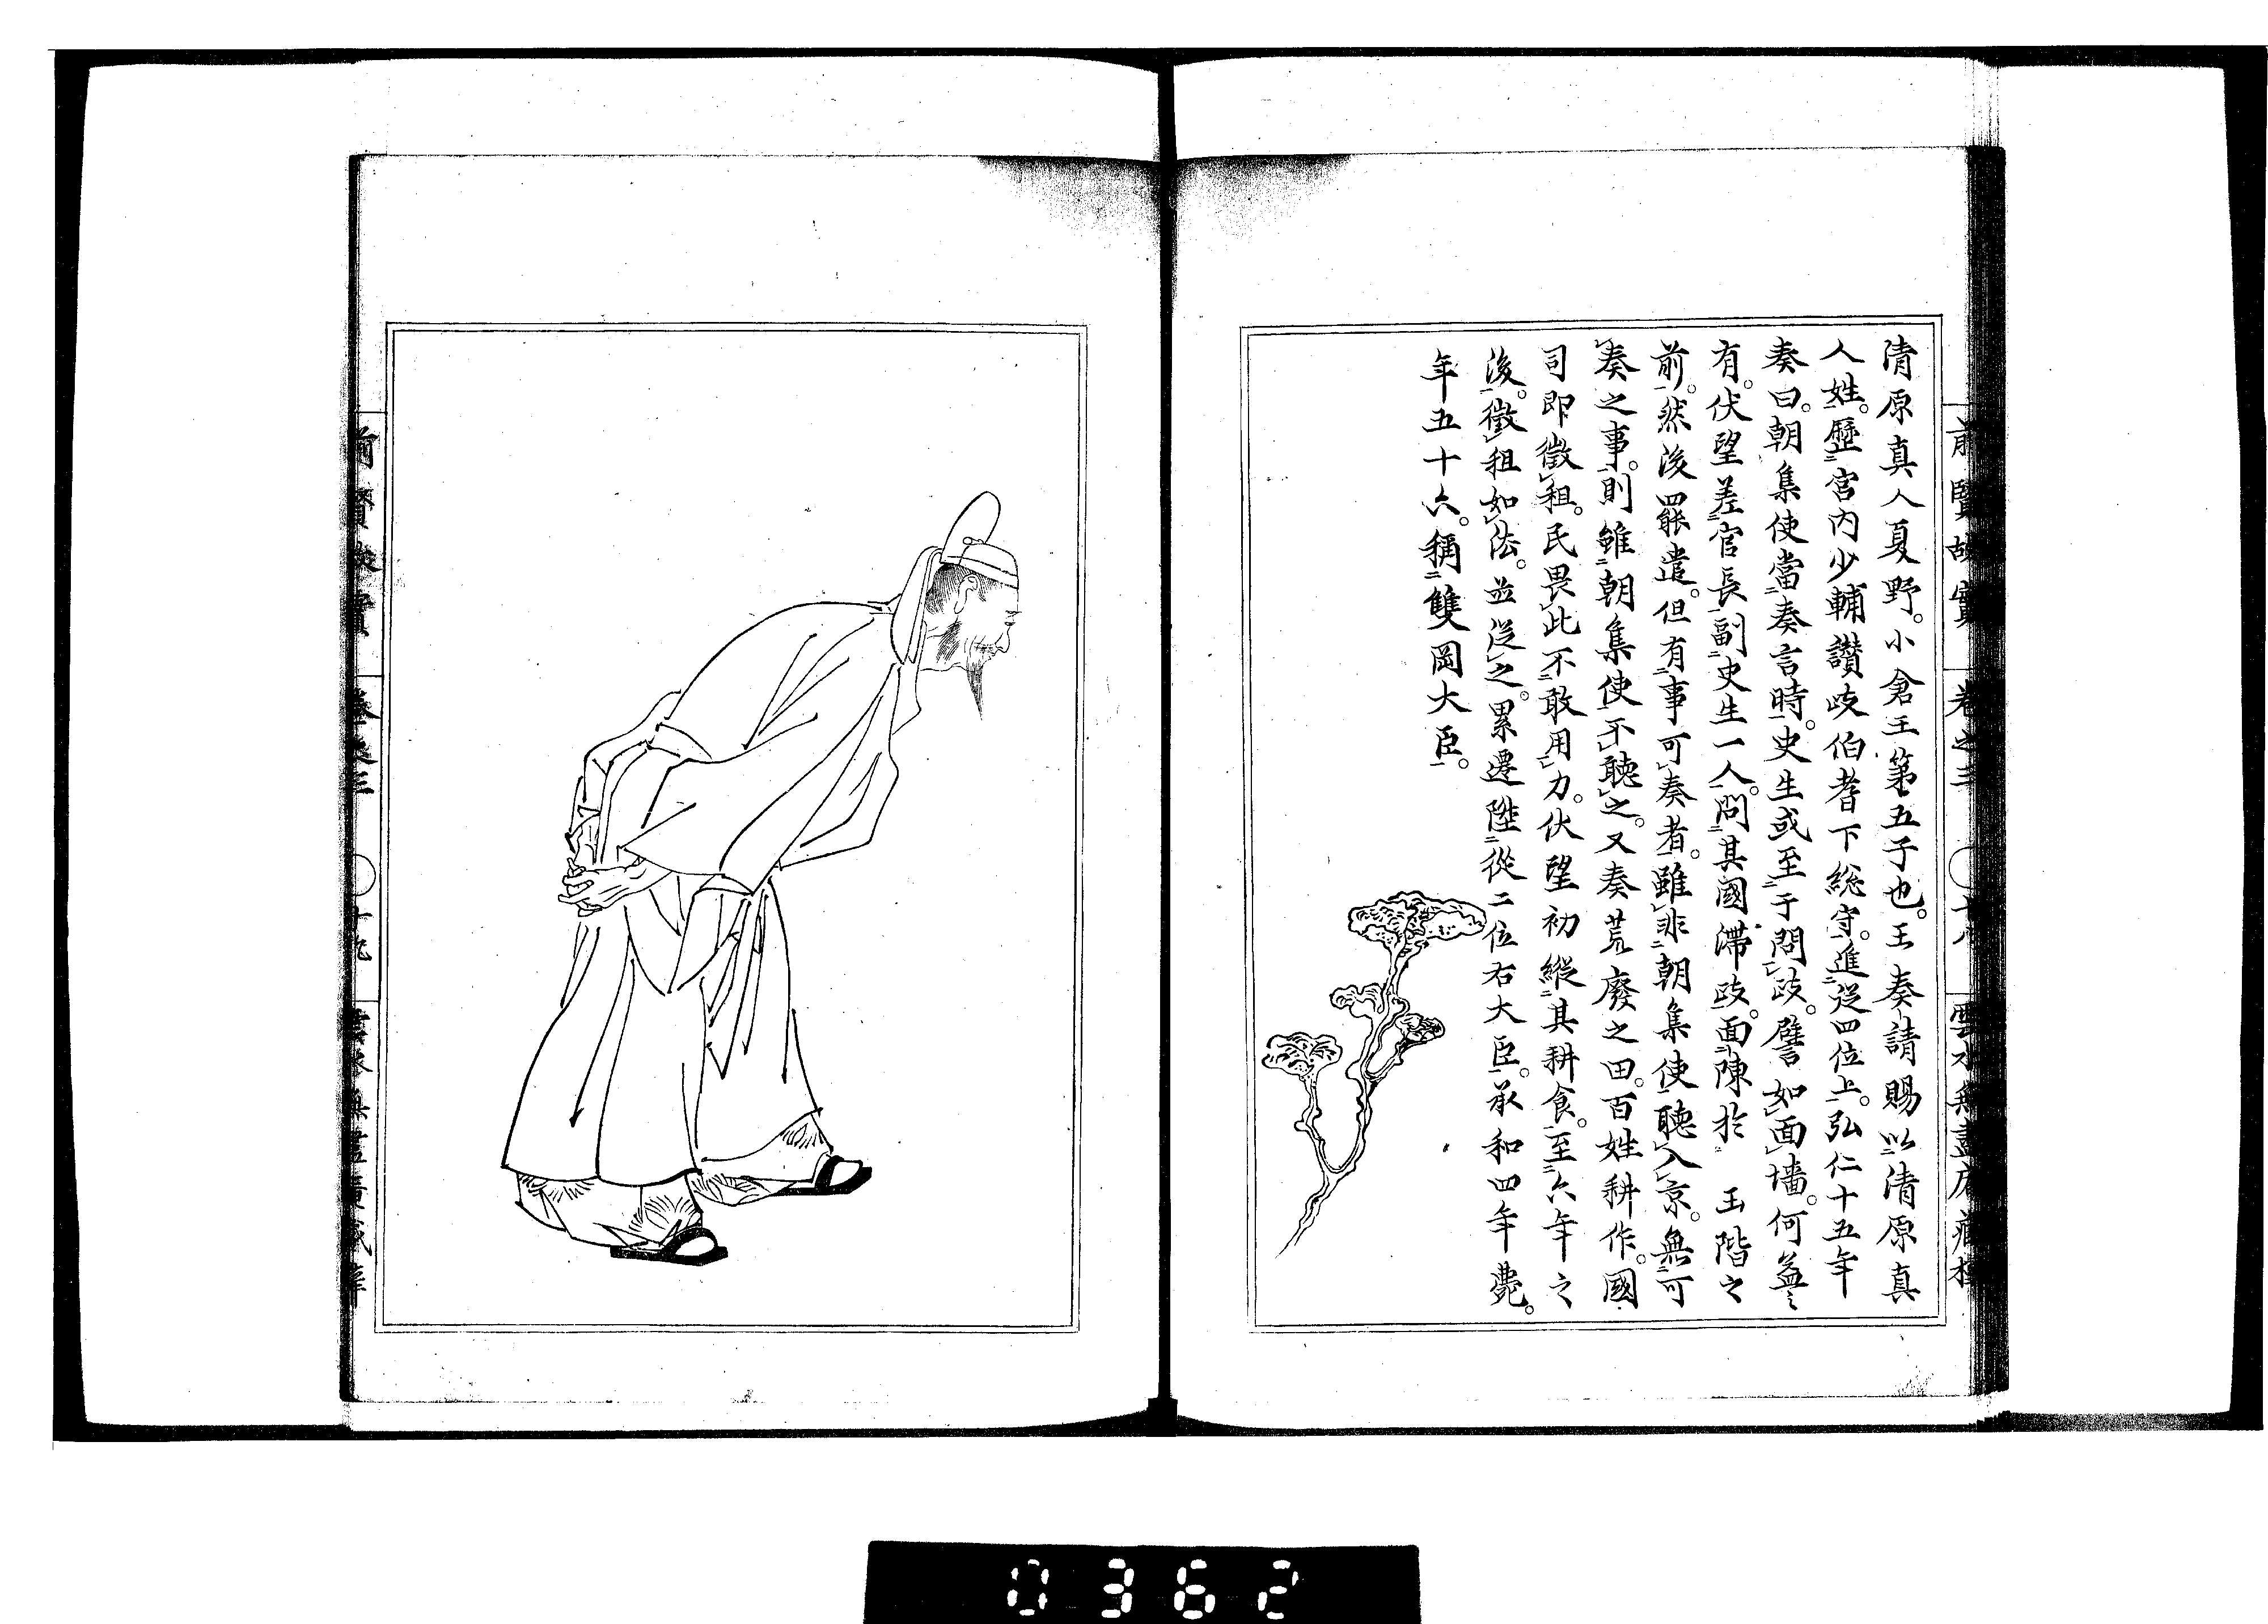 前賢故實 卷之三 〇十八 雲水無盡庵藏梓
清原真人夏野。小倉王第五子也。王奏請賜以清原真
人姓。歷宮內少輔讃岐伯耆下総守。進從四位上。弘仁十五年
奏曰。朝集使當奏言時。史生或至于問歧。譬如面墻。何益〻
有。伏望差官長副史生一人。問其國滯歧。面陳於 玉階之
前。然後罷遣。但有事可奏者。雖非朝集使聽入京。無可
奏之事。則雖朝集使不聽之。又奏荒廢之田。百姓耕作。國
司即徵租。民畏此不敢用力。伏望初縱其耕食。至六年之
後。徵租如法。並從之。累遷陞從二位右大臣。承和四年薨。
年五十六。稱雙岡大臣。
前賢故實 卷之三 〇十九
0362